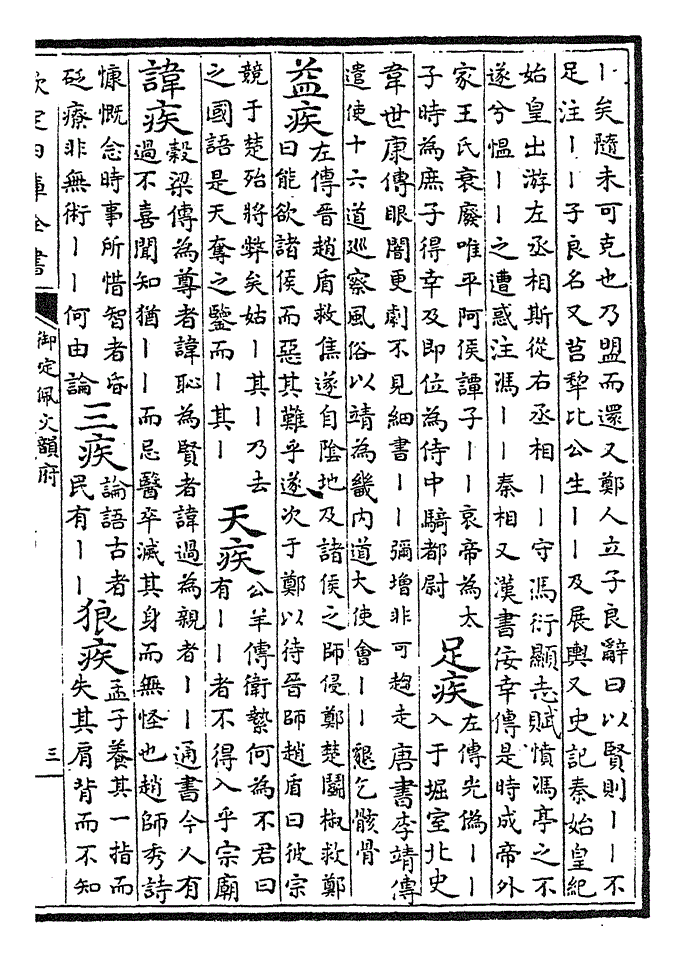 丨矣隨未可克也乃盟而還又鄭人立子良辭曰以賢則丨丨不
足注丨丨子良名又莒犂比公生丨丨及展輿又史記秦始皇紀
始皇出游左丞相斯從右丞相丨丨守馮衍顯志賦憤馮亭之不
遂兮愠丨丨之遭惑注馮丨丨秦相又漢書佞幸傳是時成帝外
家王氏衰廢唯平阿侯譚子丨丨哀帝為太
子時為庶子得幸及即位為侍中騎都尉
足疾
左傳光偽丨丨
入于堀室北史
韋世康傳眼闇更劇不見細書丨丨彌增非可趨走唐書李靖傳
遣使十六道巡察風俗以靖為畿内道大使會丨丨懇乞骸骨
益疾
左傳晉趙盾救焦遂自陰地及諸侯之師侵鄭楚鬭椒救鄭
曰能欲諸侯而惡其難乎遂次于鄭以待晉師趙盾曰彼宗
競于楚殆將弊矣姑丨其丨乃去
之國語是天奪之鑒而丨其丨
天疾
公羊傳衛縶何為不君曰
有丨丨者不得入乎宗廟
諱疾
榖梁傳為尊者諱恥為賢者諱過為親者丨丨通書今人有
過不喜聞知猶丨丨而忌醫卒滅其身而無怪也趙師秀詩
慷慨念時事所惜智者昏
砭療非無術丨丨何由論
三疾
論語古者
民有丨丨
狼疾
孟子養其一指而
失其肩背而不知
欽定四庫全書
御定佩文韻府
三